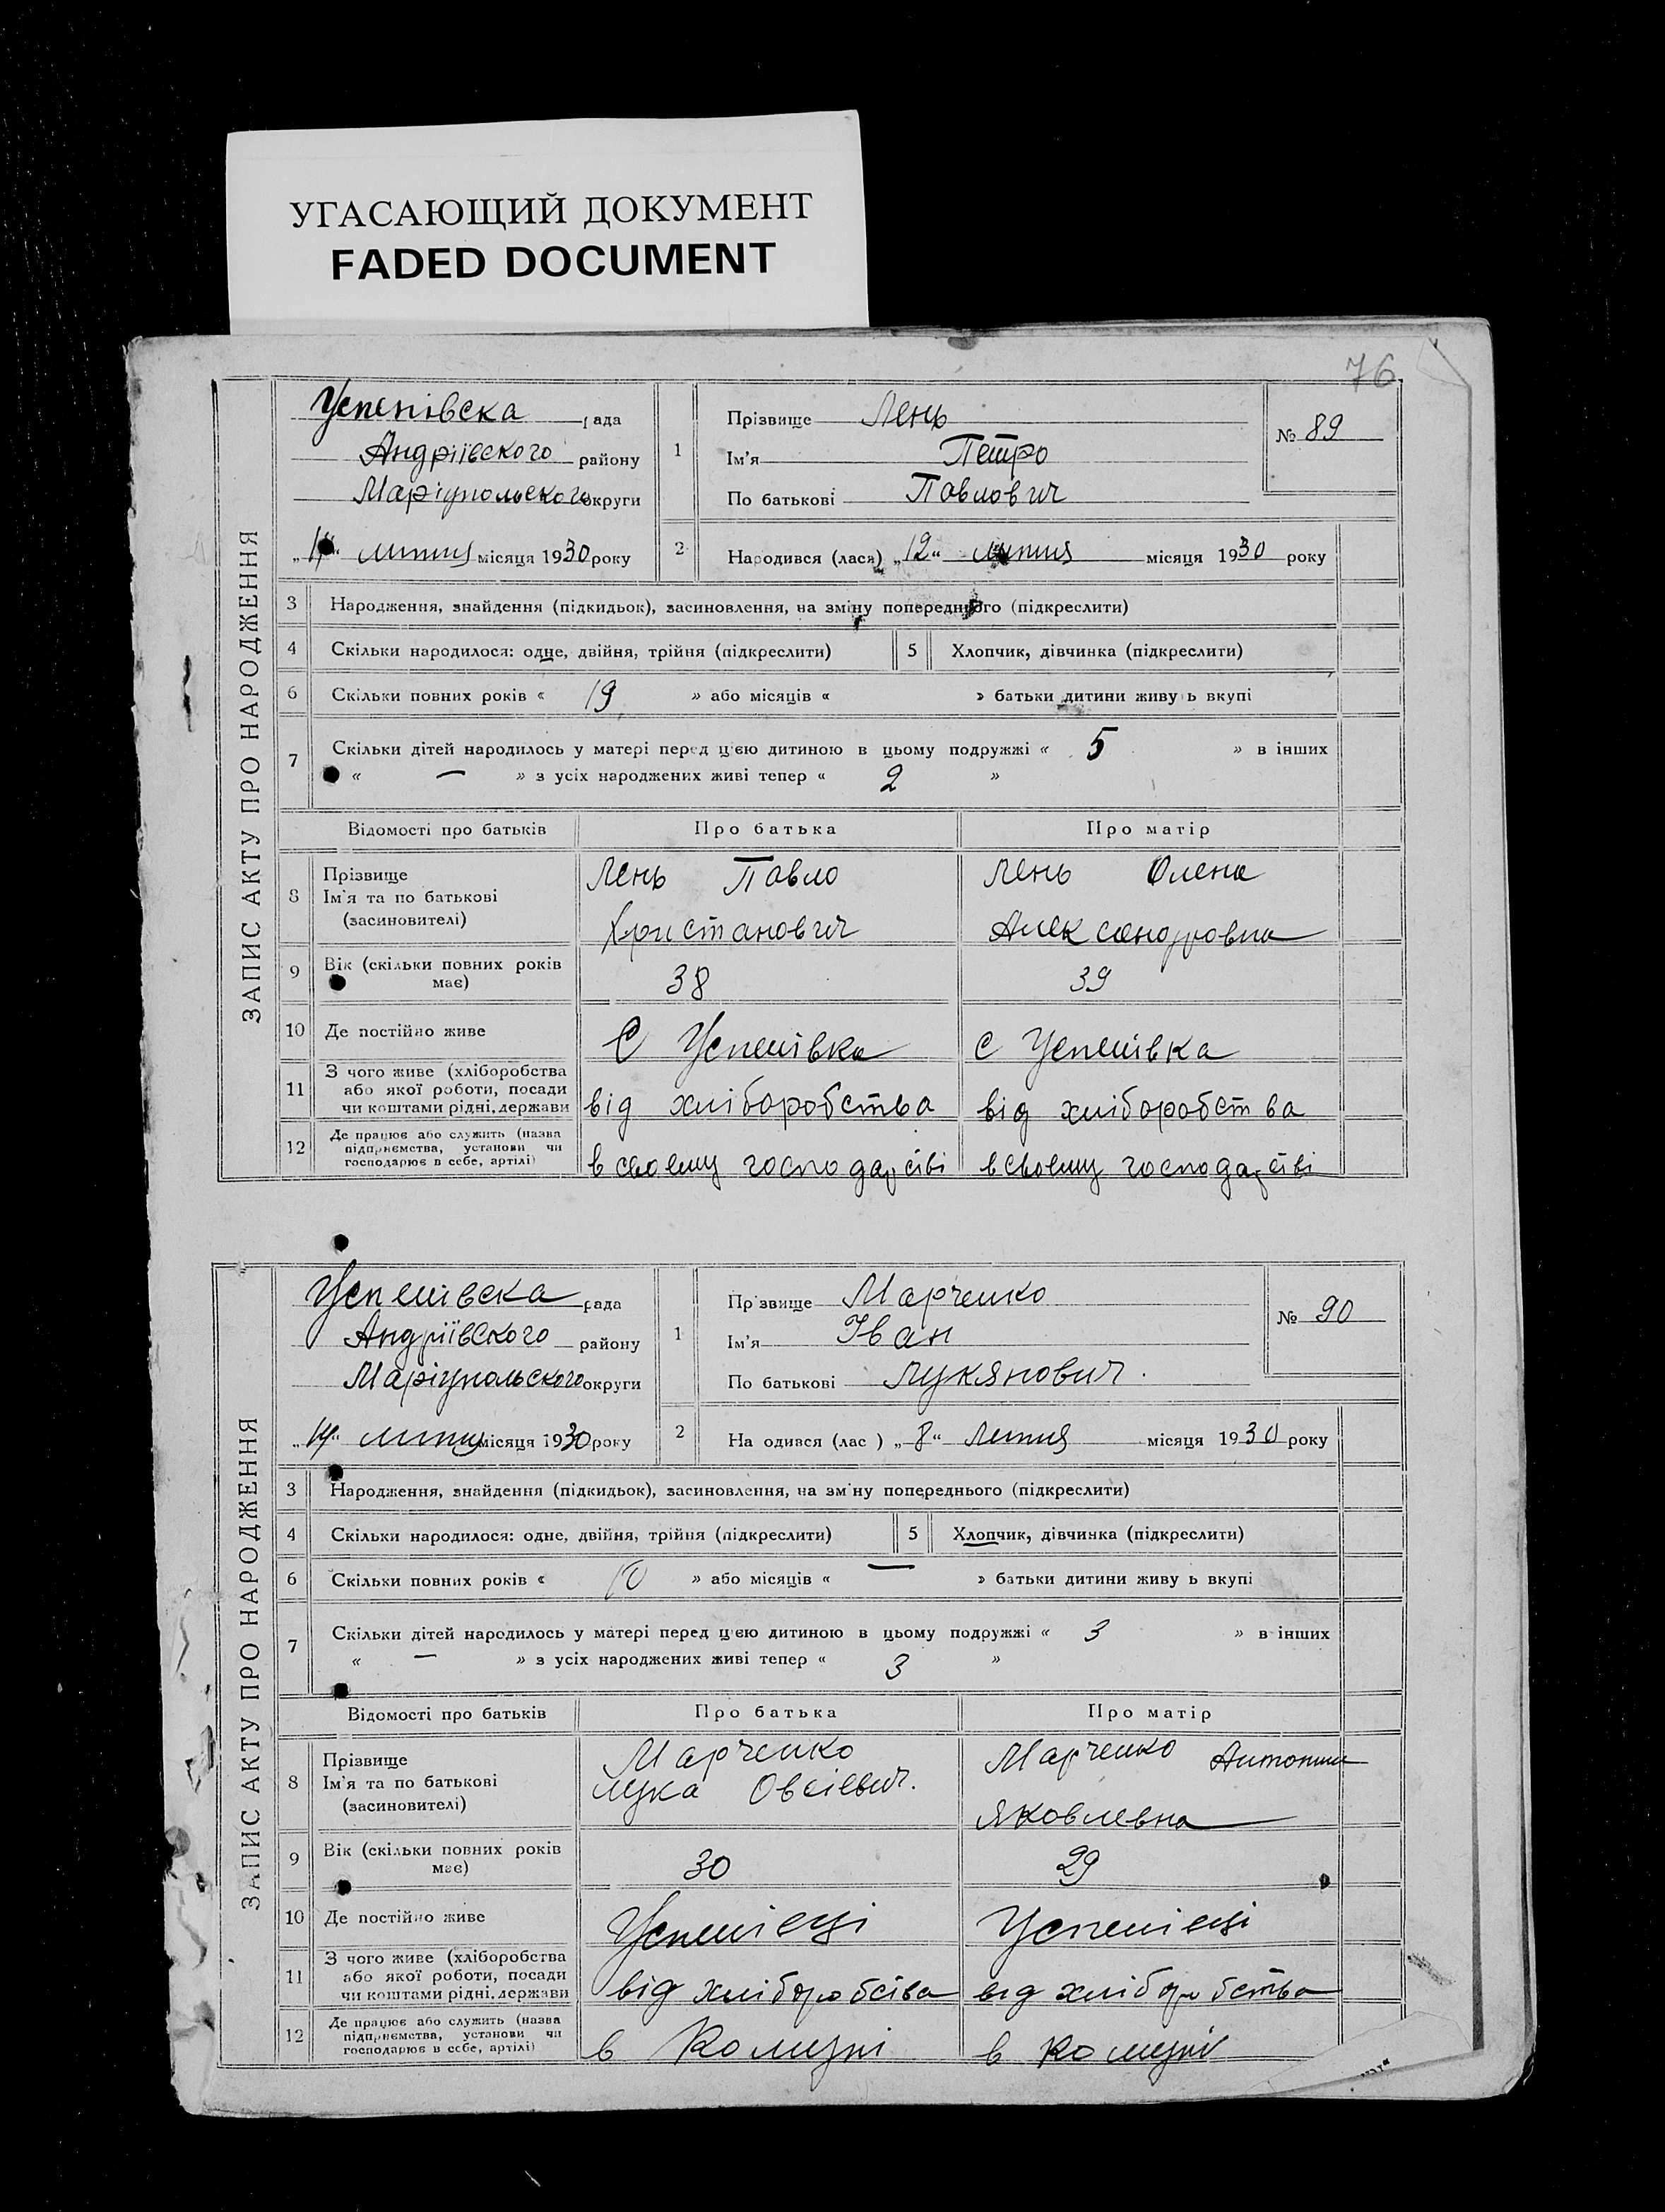 УГАСАЮЩИЙ ДОКУМЕНТ
FADED DOCUMENT
76
ЗАПИС АКТУ ПРО НАРОДЖЕННЯ
Успенівска рада
Андріївского району
Маріупольского округи
липня місяця 1930 року
1 Прізвище Лень
Ім'я Петро
По батькові Павлович
№ 89
2 Народився (лася) „12“ липня місяця 1930 року
3 Народження, знайдення (підкидьок), засиновлення, на зміну попереднього (підкреслити)
4 Скільки народилося: одне, двійня, трійня (підкреслити) 5 Хлопчик, дівчинка (підкреслити)
6 Скільки повних років « 19 » або місяців « » батьки дитини живу ь вкупі
7 Скільки дітей народилось у матері перед цією дитиною в цьому подружжі « 5 » в інших
« — » з усіх народжених живі тепер « 2 »
Відомості про батьків Про батька Про матір
8 Прізвище
Ім'я та по батькові
(засиновителі)
Лень Павло
Христанович
Лень Олена
Александровна
9 Вік (скільки повних років
має)
38 39
10 Де постійно живе С Успенівка с Успенівка
11 З чого живе (хліборобства
або якої роботи, посади
чи коштами рідні, держави
від хліборобства від хліборобства
12 Де працює або служить (назва
підприємства, установи чи
господарює в себе, артілі)
в своему господарстві в своему господарстві
ЗАПИС АКТУ ПРО НАРОДЖЕННЯ
Успенівска рада
Андріївского району
Маріупольского округи
„14“ липня місяця 1930 року
1 Пр звище Марченко
Ім'я Іван
По батькові Лукянович.
№ 90
2 На одився (лас ) „8“ Липня місяця 1930 року
3 Народження, знайдення (підкидьок), засиновлення, на зм ну попереднього (підкреслити)
4 Скільки народилося: одне, двійня, трійня (підкреслити) 5 Хлопчик, дівчинка (підкреслити)
6 Скільки повних років « 10 » або місяців « — » батьки дитини живу ь вкупі
7 Скільки дітей народилось у матері перед цією дитиною в цьому подружжі « 3 » в інших
« — » з усіх народжених живі тепер « 3 »
Відомості про батьків Про батька Про матір
8 Прізвище
Ім'я та по батькові
(засиновителі)
Марченко
Лука Овсієвич.
Марченко
Яковлевна
9 Вік (скільки повних років
має)
30 29
10 Де постійно живе Успенівці Успенівці
11 З чого живе (хліборобства
або якої роботи, посади
чи коштами рідні, держави
від хліборобства від хліборобства
12 Де працює або служить (назва
підприємства, установи чи
господарює в себе, артілі)
в Комуні в комуні